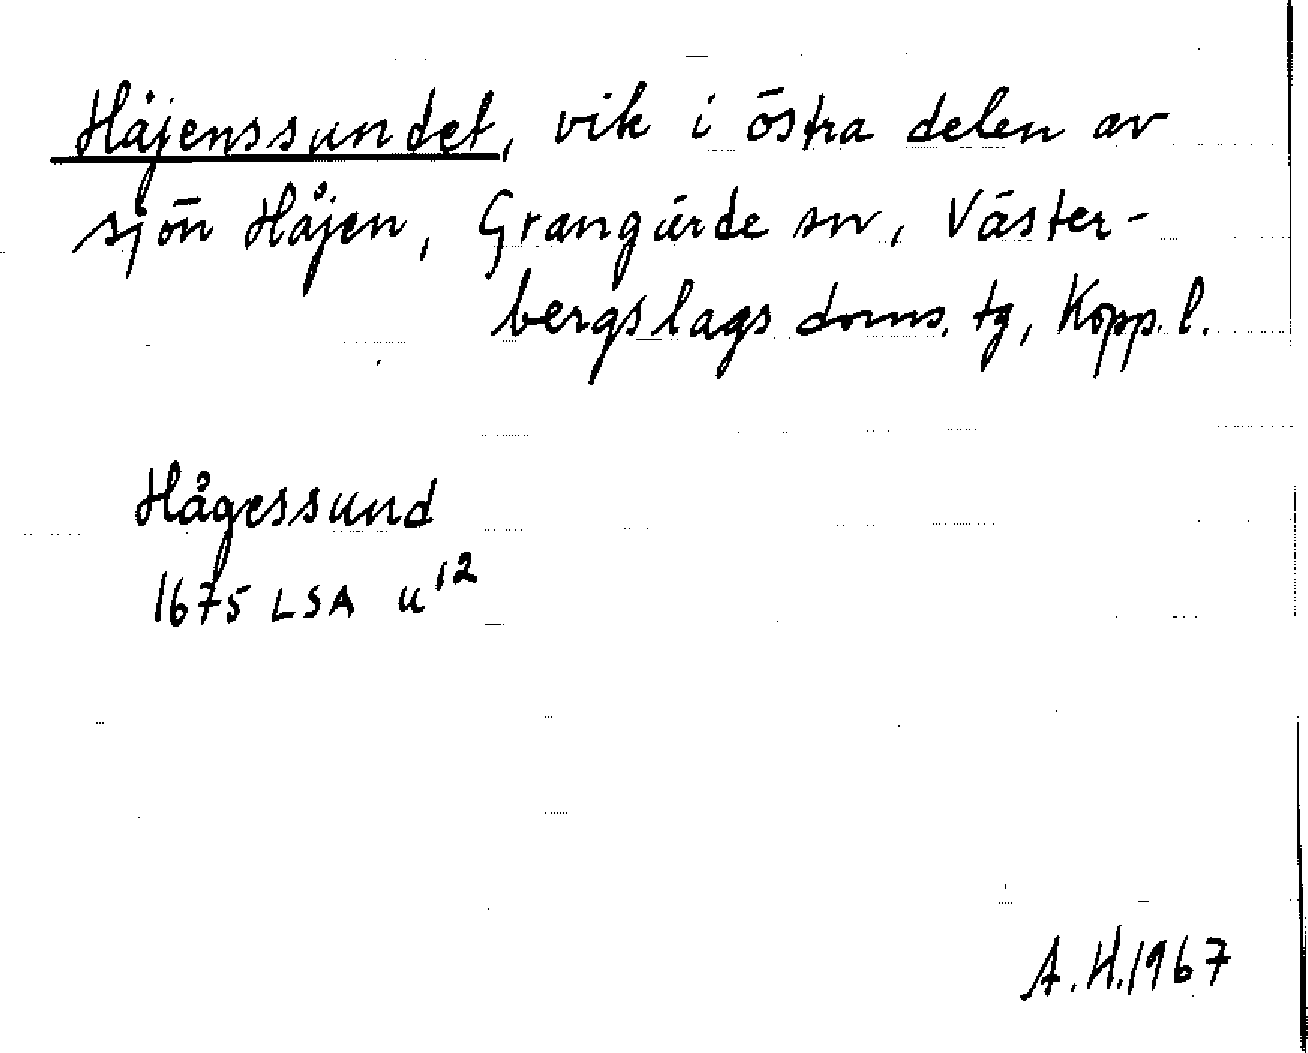 Håjenssundet, vik i östra delen av
sjön Håjen, Grangärde sn, Väster-
bergslags doms. tg, Kopp. l.
Hågessund
1675 LSA u¹²
A. H. 1967